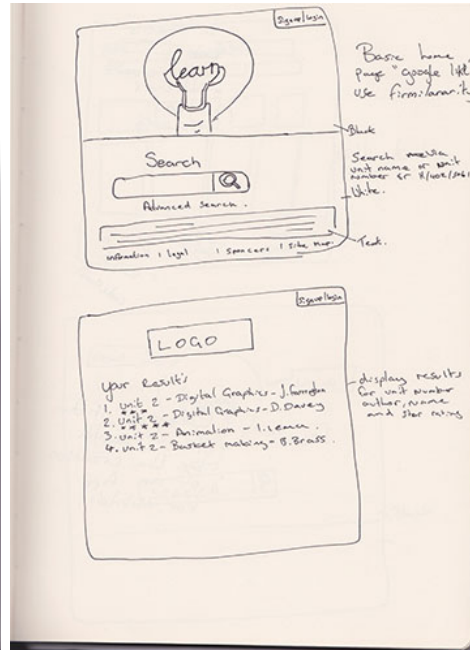 Signup/login
learn
Basic home
page "google like
use firmilararity
Black
Search
Search media
unit name or unit
number or
White.
Advanced Search.
Text.
information | legal | Sponcers | Site Map.
Signup/login
LOGO
your Result's
1. Unit 2 - Digital Graphics - J. Farrington
★★★
2. Unit 2 - Digital Graphics - D. Davey
★★★★★
3. Unit 2 - Animation - I. Lemu.
4. Unit 2 - Basket making - B. Brass.
display results
for unit number
author, name
and star rating